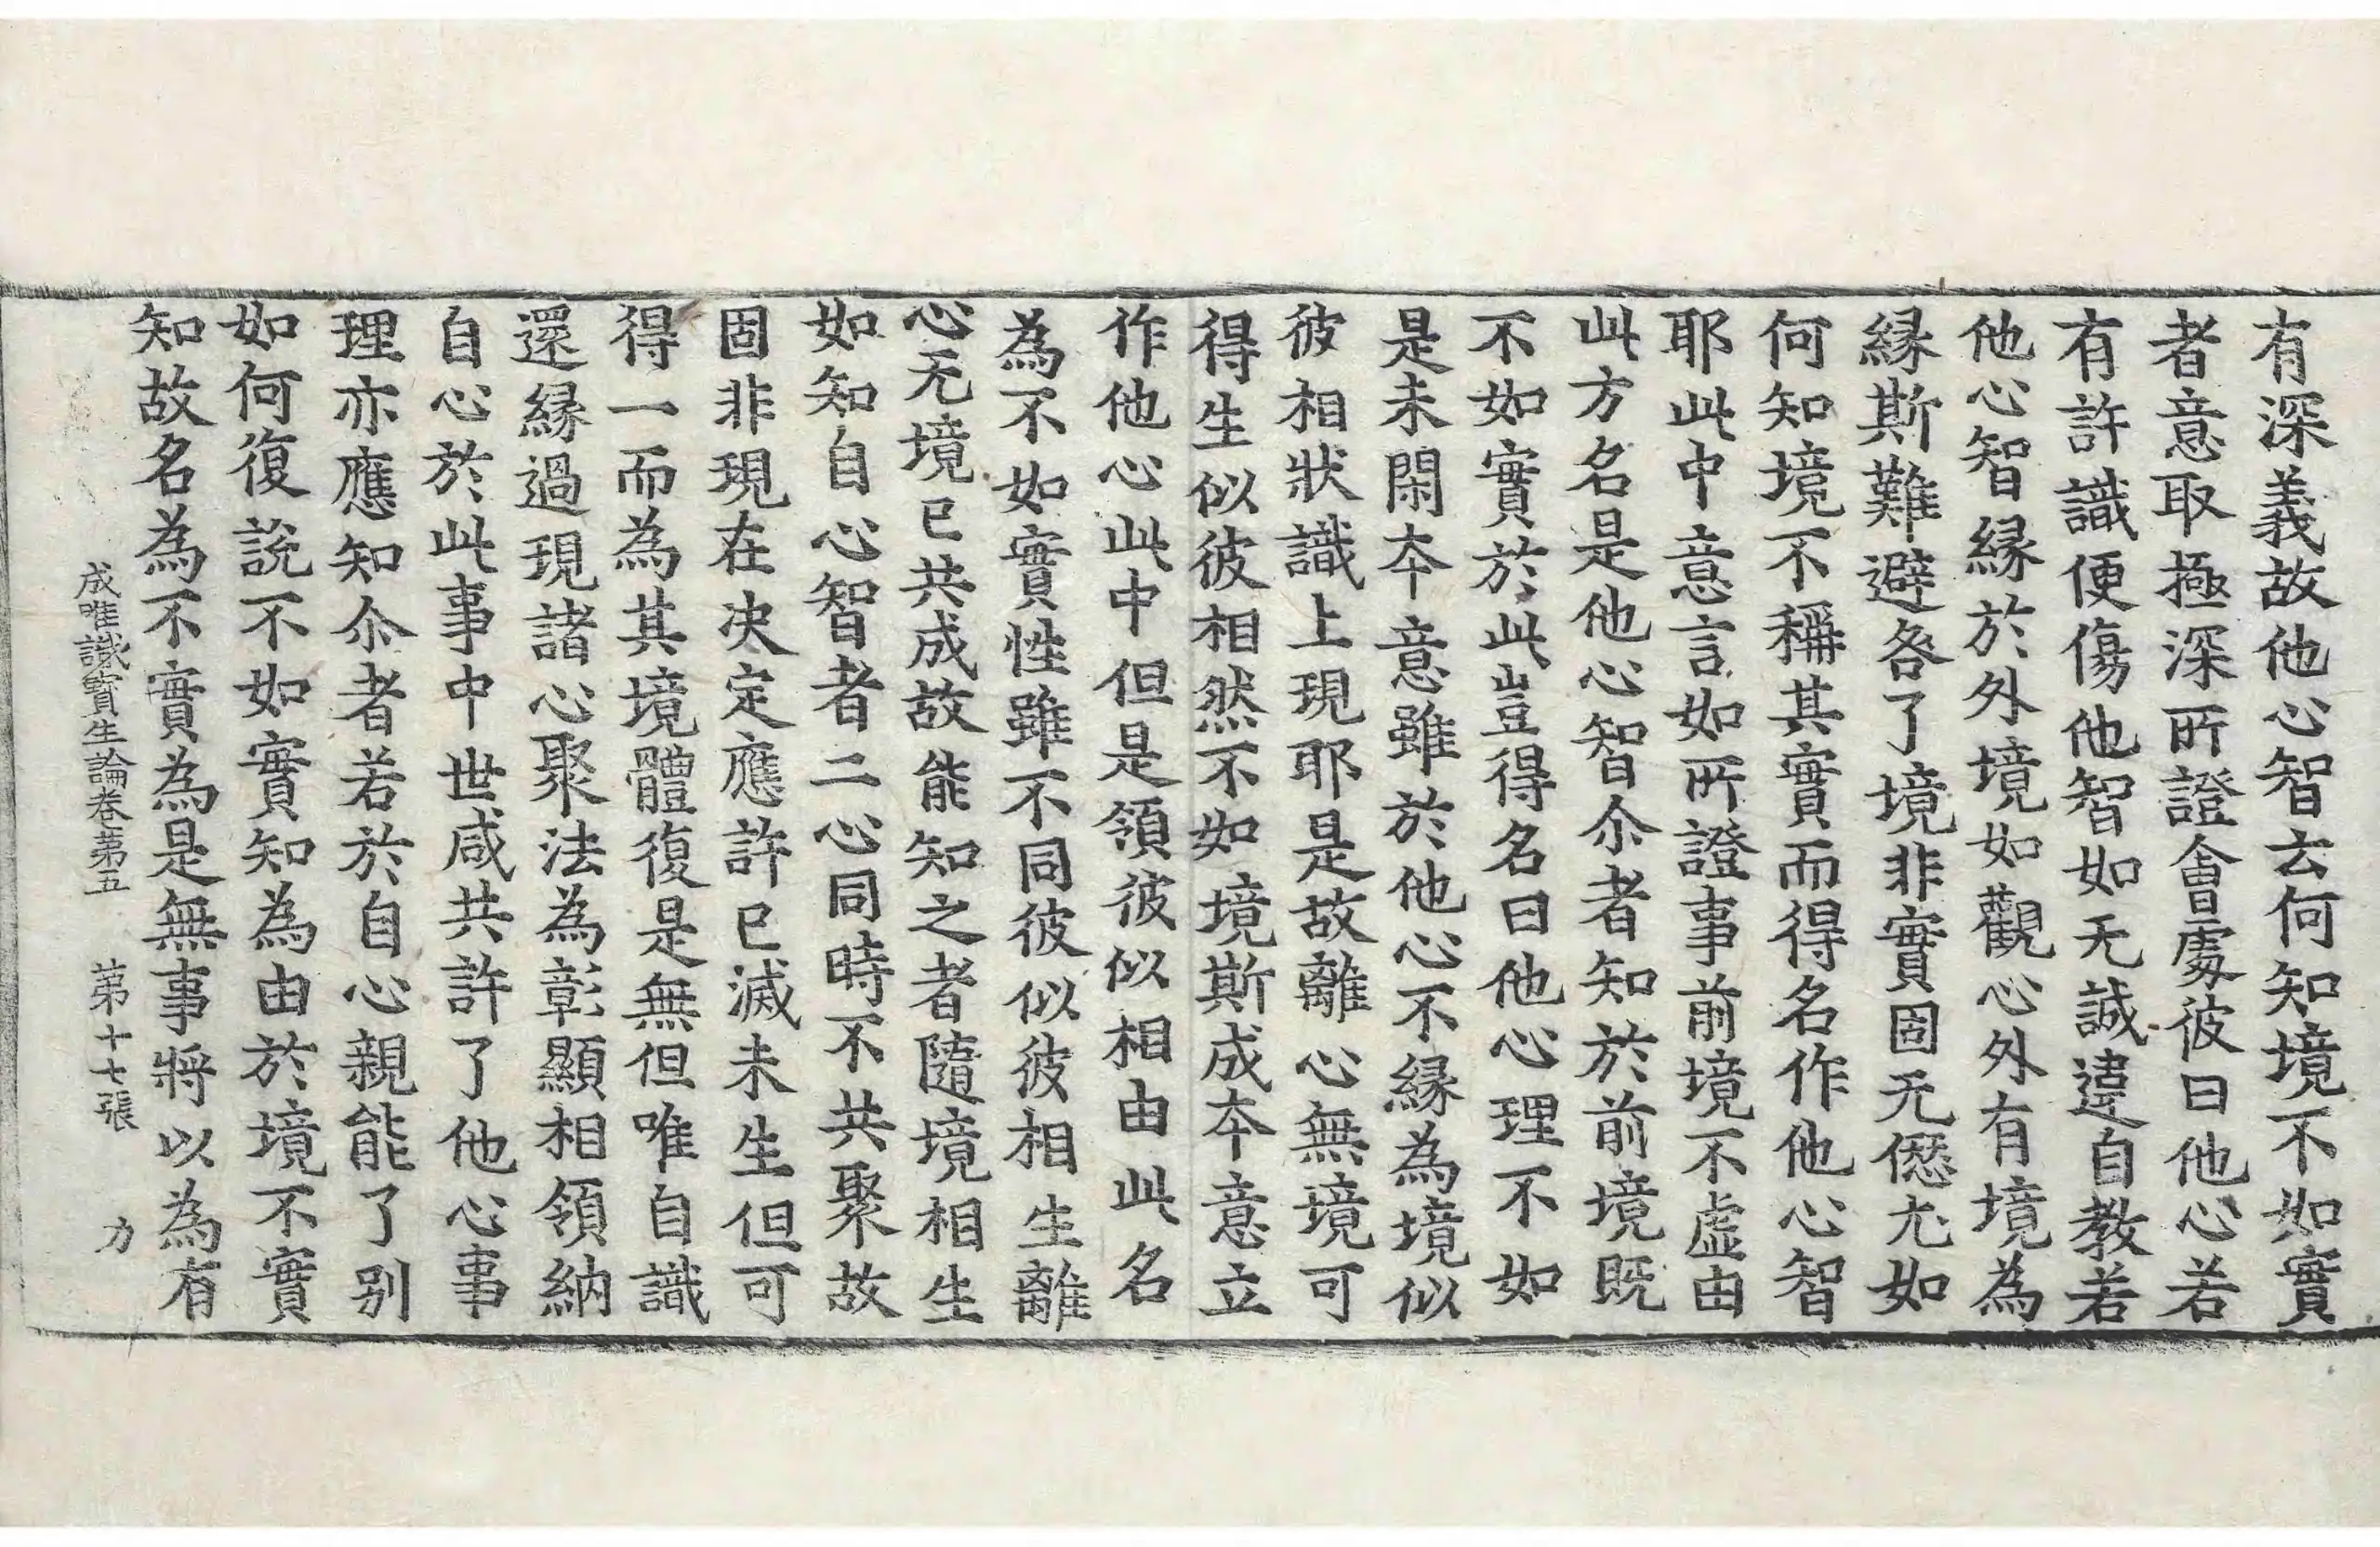 有深義故他心智云何知境不如實
者意取極深所證會處彼曰他心若
有許識便傷他智如无誠違自教若
他心智緣於外境如觀心外有境為
緣斯難避各了境非實固无僁尤如
何知境不稱其實而得名作他心智
耶此中意言如所證事前境不虛由
此方名是他心智尒者知於前境既
不如實於此豈得名曰他心理不如
是未閑本意雖於他心不緣為境似
彼相狀識上現耶是故離心無境可
得生似彼相然不如境斯成本意立
作他心此中但是領彼似相由此名
為不如實性雖不同彼似彼相生離
心无境已共成故能知之者隨境相生
如知自心智者二心同時不共聚故
固非現在決定應許已滅未生但可
得一而為其境體復是無但唯自識
還緣過現諸心聚法為彰顯相領納
自心於此事中世咸共許了他心事
理亦應知尒者若於自心親能了別
如何復說不如實知為由於境不實
知故名為不實為是無事將以為有
成唯識寶生論卷第五 第十七張 力